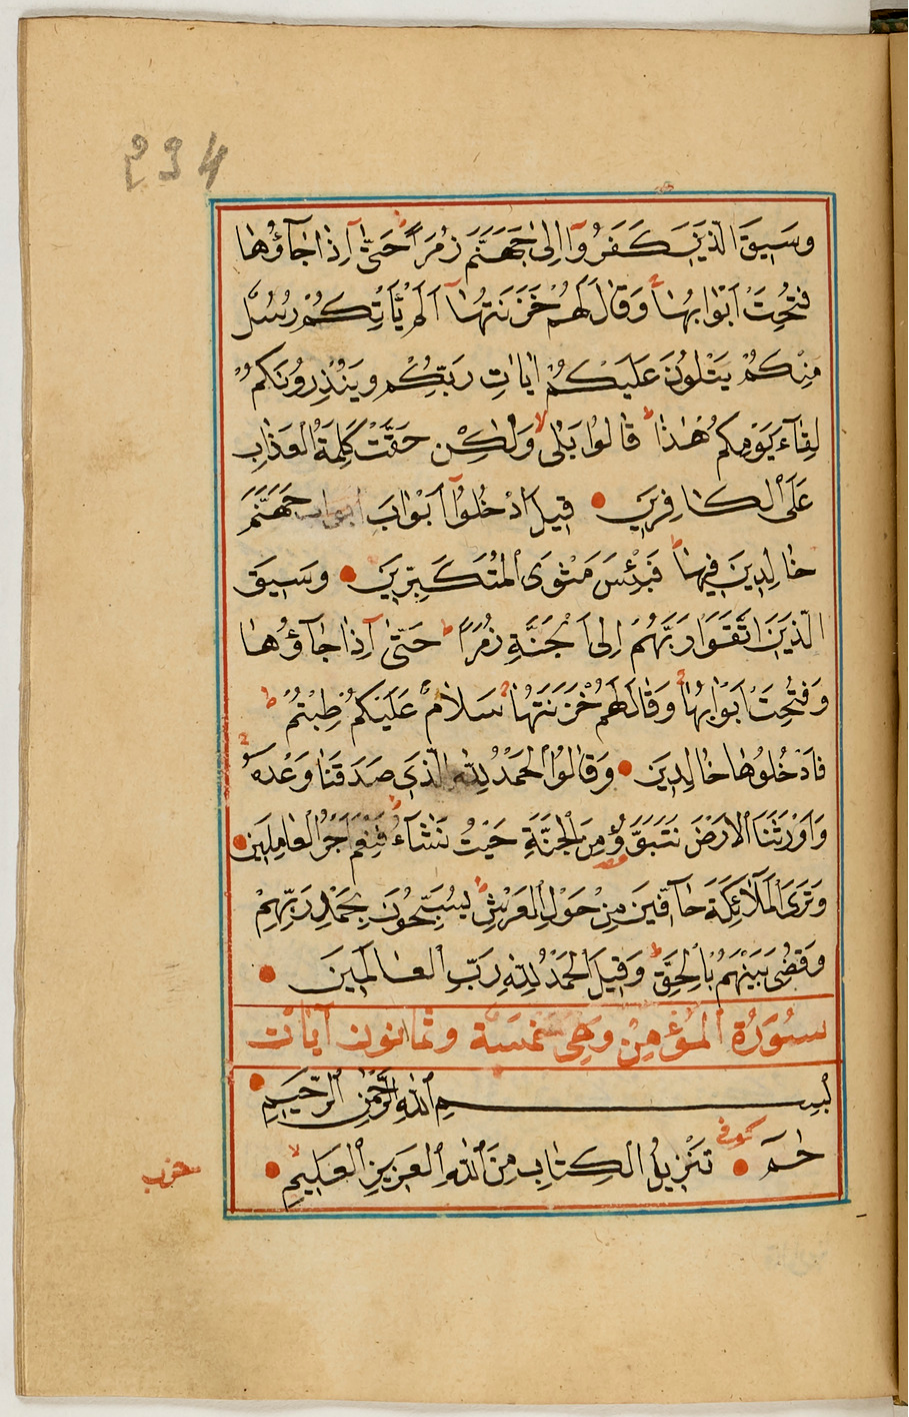 234
وَسِيقَ الَّذِينَ كَفَرُوٓا اِلٰى جَهَنَّمَ زُمَرًا حَتّٰىٓ اِذَا جَآؤُهَا
فُتِحَتْ اَبْوَابُهَا وَقَالَ لَهُمْ خَزَنَتُهَآ اَلَمْ يَاْتِكُمْ رُسُلٌ
مِنْكُمْ يَتْلُونَ عَلَيْكُمْ اٰيَاتِ رَبِّكُمْ وَيُنْذِرُونَكُمْ
لِقَآءَ يَوْمِكُمْ هٰذَا قَالُوا بَلٰى وَلٰكِنْ حَقَّتْ كَلِمَةُ الْعَذَابِ
عَلَى الْكَافِرِينَ قِيلَ ادْخُلُوٓا اَبْوَابَ ابواب جَهَنَّمَ
خَالِدِينَ فِيهَا فَبِئْسَ مَثْوَى الْمُتَكَبِّرِينَ وَسِيقَ
الَّذِينَ اتَّقَوْا رَبَّهُمْ اِلَى الْجَنَّةِ زُمَرًا حَتّٰىٓ اِذَا جَآؤُهَا
وَفُتِحَتْ اَبْوَابُهَا وَقَالَ لَهُمْ خَزَنَتُهَا سَلَامٌ عَلَيْكُمْ طِبْتُمْ
فَادْخُلُوهَا خَالِدِينَ وَقَالُوا الْحَمْدُ لِلّٰهِ الَّذِي صَدَقَنَا وَعْدَهُ
وَاَوْرَثَنَا الْاَرْضَ نَتَبَوَّؤُ مِنَ الْجَنَّةِ حَيْثُ نَشَآءُ فَنِعْمَ اَجْرُ الْعَامِلِينَ
وَتَرَى الْمَلَآئِكَةَ حَآفِّينَ مِنْ حَوْلِ الْعَرْشِ يُسَبِّحُونَ بِحَمْدِ رَبِّهِمْ
وَقُضِيَ بَيْنَهُمْ بِالْحَقِّ وَقِيلَ الْحَمْدُ لِلّٰهِ رَبِّ الْعَالَمِينَ
سُورَةُ الْمُؤْمِنْ وَهِيَ خَمْسَة وثَمانون آيات
بِسْمِ اللّٰهِ الرَّحْمٰنِ الرَّحِيمِ
كوفى
حٰمٓ تَنْزِيلُ الْكِتَابِ مِنَ اللّٰهِ الْعَزِيزِ الْعَلِيمِ
حزب